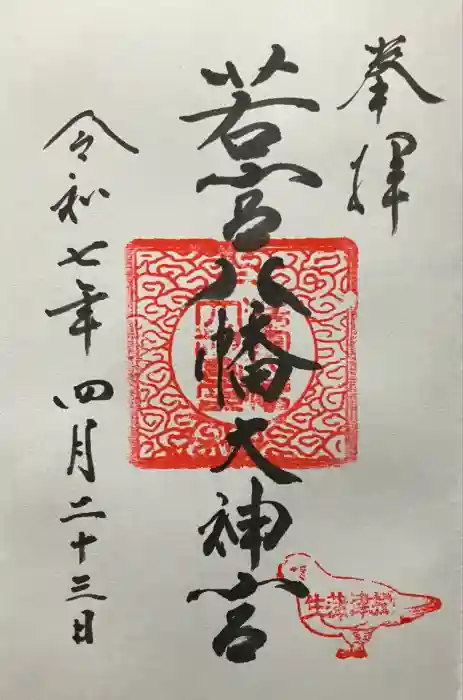 奉拝
若宮八幡大神宮
令和七年四月二十三日
攝津蒲生